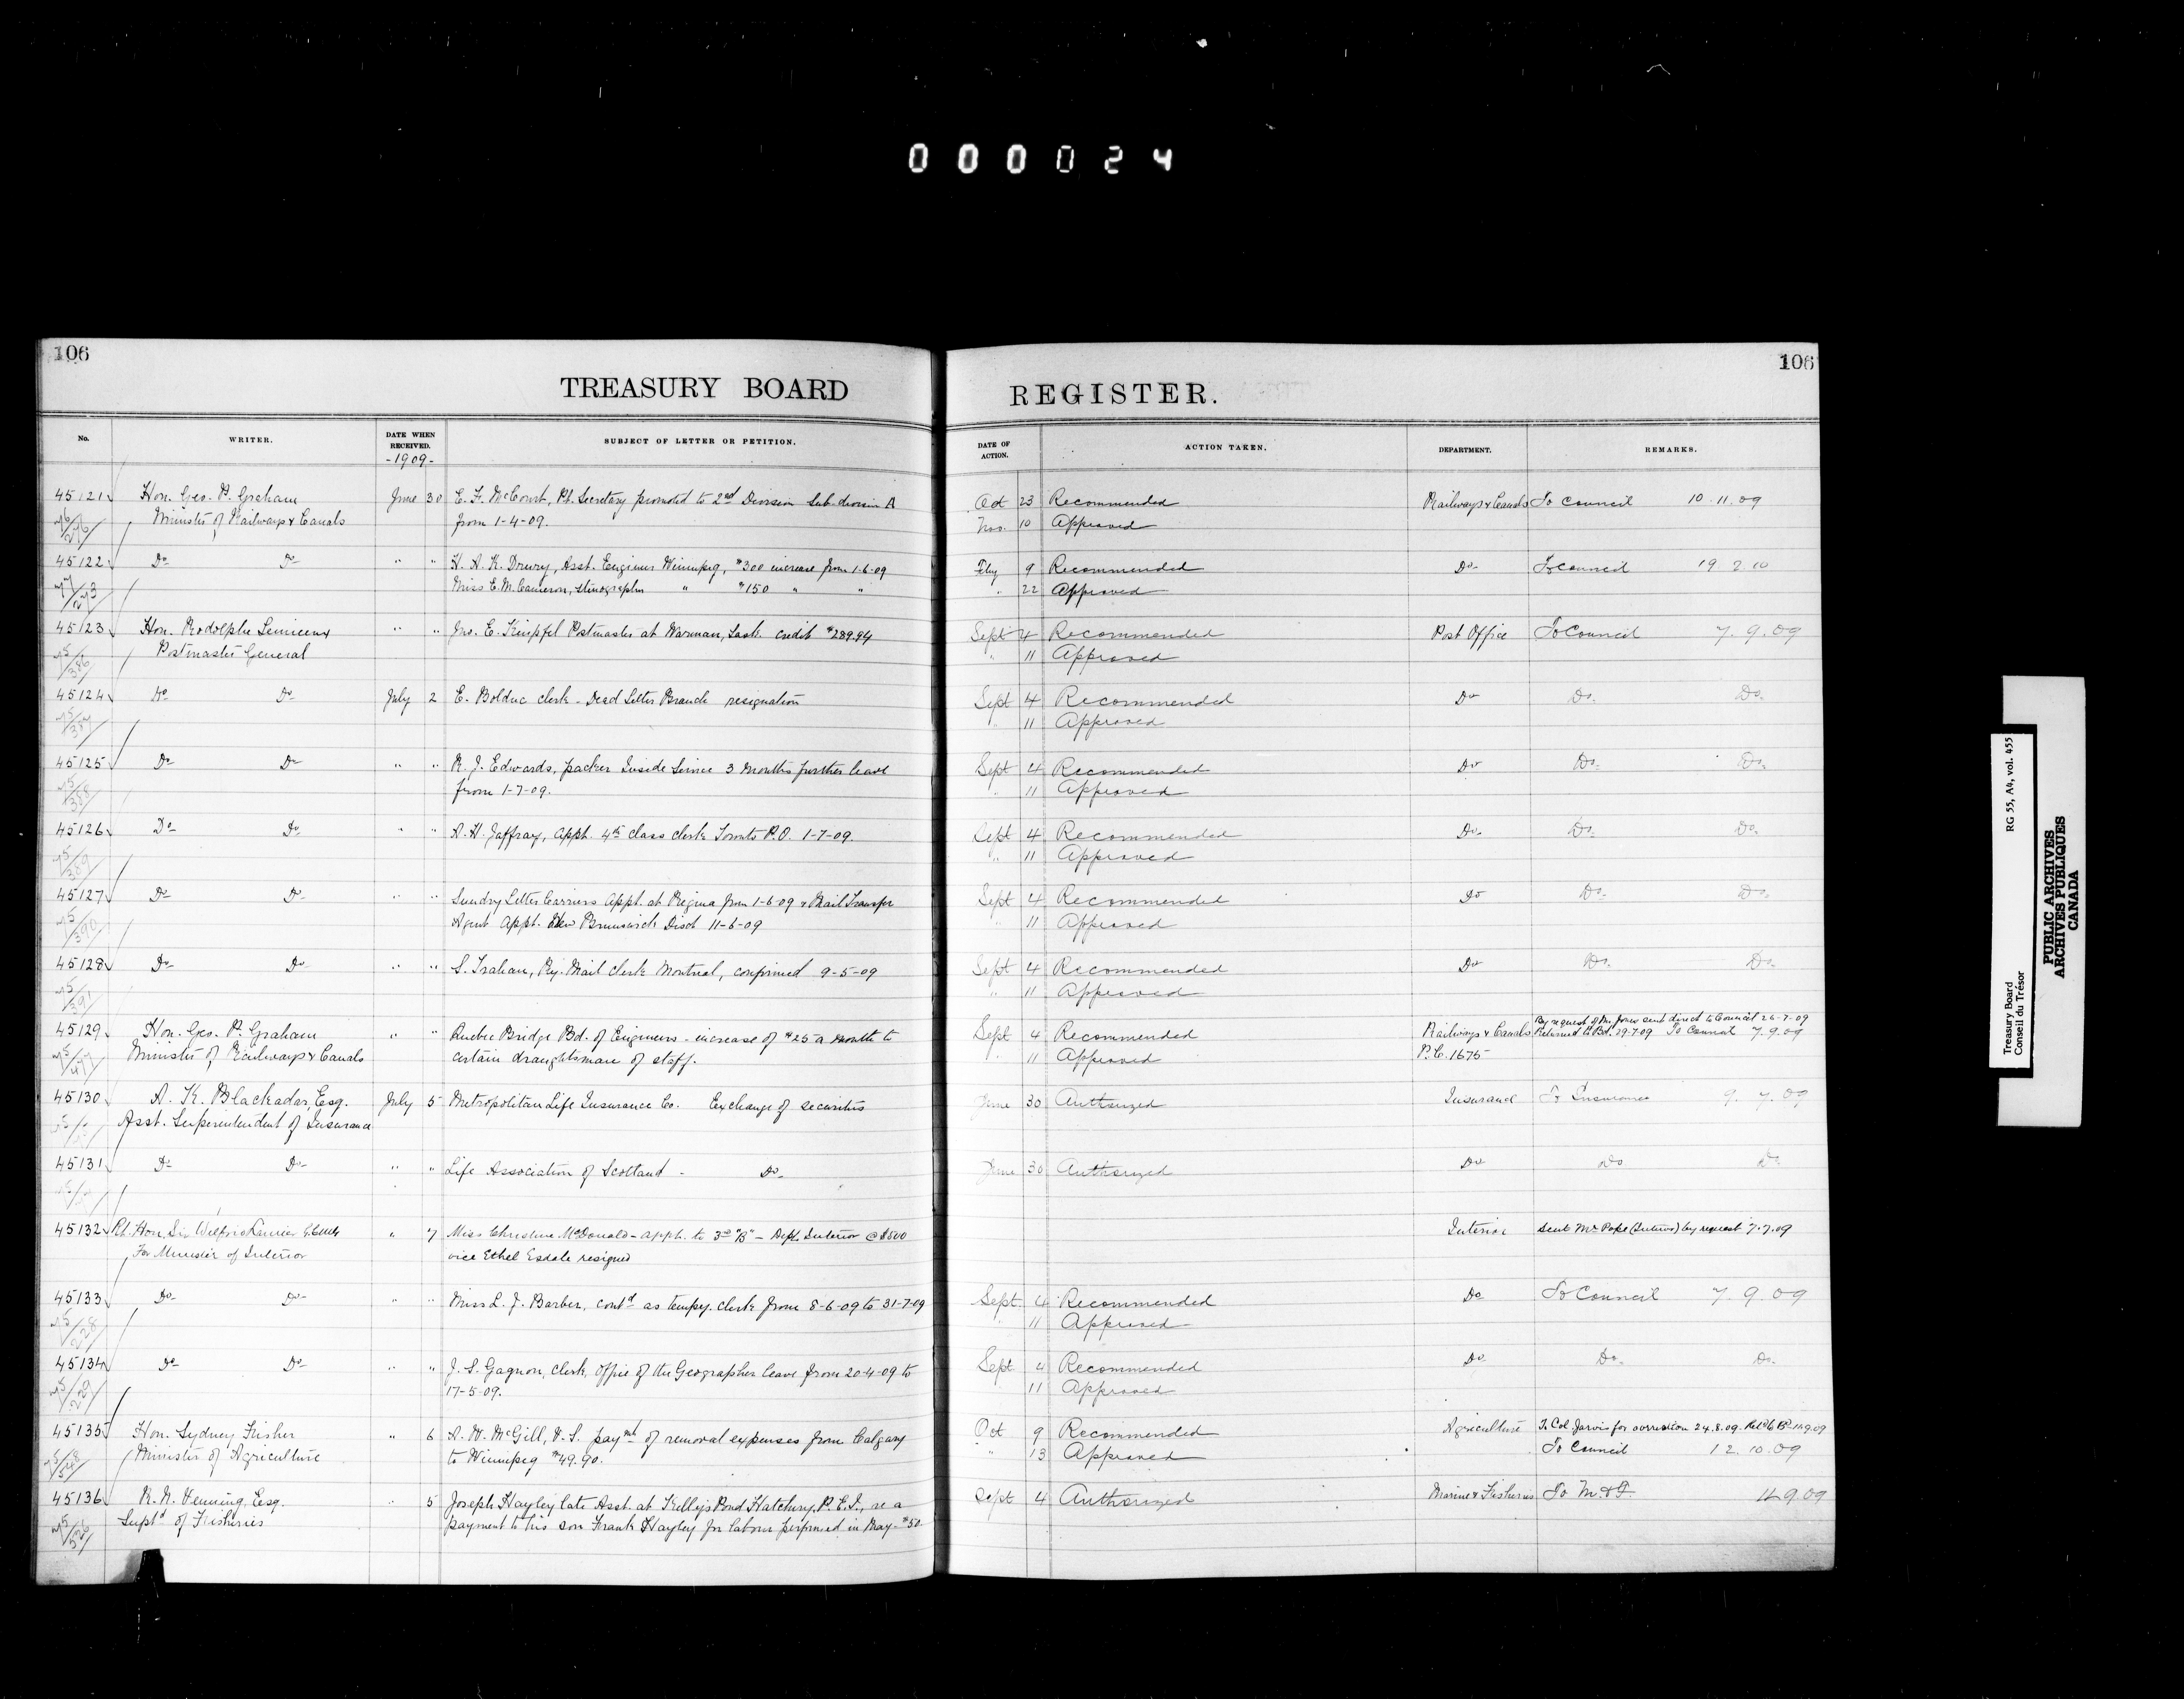 000024
106
106
TREASURY BOARD REGISTER.
No.
WRITER.
DATE WHEN RECEIVED.
-1909-
SUBJECT OF LETTER OR PETITION.
DATE OF ACTION.
ACTION TAKEN.
DEPARTMENT.
REMARKS.
45121 Hon. Geo. P. Graham June 30 E. F. McCourt, Pt. Secretary promoted to 2nd Division Sub-division A Oct 23 Recommended Railways & Canals To Council 10.11.09
Minister of Railways & Canals from 1-4-09. Nov. 10 Approved
45122 Do- Do- " " H. A. K. Drury, Asst. Engineer Winnipeg, $300 increase from 1-6-09 Feby 9 Recommended Do- To Council 19 2 10
Miss E. M. Cameron, Stenographer " $150 " " " 22 Approved
45123 Hon. Rodolphe Lemieux " " Jno. E. Knipfel Postmaster at Warman, Sask. credit $289.94 Sept 4 Recommended Post Office To Council 7.9.09
Postmaster General " 11 Approved
45124 Do Do- July 2 E. Bolduc clerk - Dead Letter Branch resignation Sept 4 Recommended Do Do. Do.
" 11 Approved
45125 Do- Do- " " R. J. Edwards, packer Inside Service 3 months further leave Sept 4 Recommended Do Do- Do-
from 1-7-09. " 11 Approved
45126 Do- Do- " " A. H. Jaffray, appt. 4th class clerk Toronto P.O. 1-7-09. Sept 4 Recommended Do- Do- Do-
" 11 Approved
45127 Do- Do- " " Sundry Letter Carriers Appt. at Regina from 1-6-09 & Mail Transfer Sept 4 Recommended Do Do- Do-
Agent Appt. New Brunswick Dist 11-6-09 " 11 Approved
45128 Do- Do- " " S. Trahan, Ry. Mail Clerk Montreal, confirmed 9-5-09 Sept 4 Recommended Do Do- Do-
" 11 Approved
45129 Hon. Geo. P. Graham " " Quebec Bridge Bd. of Engineers - increase of $25 a month to Sept 4 Recommended Railways & Canals By request of Mr. Jones sent direct to Council 26-7-09
Returned to Bd. 29.7.09 To Council 7.9.09
Minister of Railways & Canals certain draughtsmen of staff. " 11 Approved P.C. 1675
45130 A. K. Blackadar, Esq. July 5 Metropolitan Life Insurance Co. Exchange of securities June 30 Authorized Insurance To Insurance 9.7.09
Asst. Superintendent of Insurance
45131 Do- Do- " " Life Association of Scotland - Do- June 30 Authorized Do Do Do
45132 Rt. Hon. Sir Wilfrid Laurier G.C.M.G. " 7 Miss Christine McDonald - appt. to 3rd "B" - Dept. Interior @ $500 Interior Sent Mr Pope (Interior) by request 7.7.09
For Minister of Interior vice Ethel Esdale resigned
45133 Do- Do- " " Miss L. J. Barber, contd as tempy. clerk from 8-6-09 to 31-7-09 Sept. 4 Recommended Do To Council 7.9.09
" 11 Approved
45134 Do- Do- " " J. S. Gagnon, Clerk, Office of the Geographer leave from 20-4-09 to Sept 4 Recommended Do Do. Do.
17-5-09. " 11 Approved
45135 Hon. Sydney Fisher " 6 A. W. McGill, V.S. paymt of removal expenses from Calgary Oct 9 Recommended Agriculture To Col. Jarvis for correction 24.8.09. Retd to Bd 11.9.09
Minister of Agriculture to Winnipeg $49.90. " 13 Approved To Council 12.10.09
45136 R. N. Venning, Esq. " 5 Joseph Hayley late Asst. at Kelly's Pond Hatchery, P.E.I., re a Sept 4 Authorized Marine & Fisheries To M. & F. 14.9.09
Suptd of Fisheries payment to his son Frank Hayley for labour performed in May - $50
Treasury Board
Conseil du Trésor
RG 55, A4, vol. 455
PUBLIC ARCHIVES
ARCHIVES PUBLIQUES
CANADA